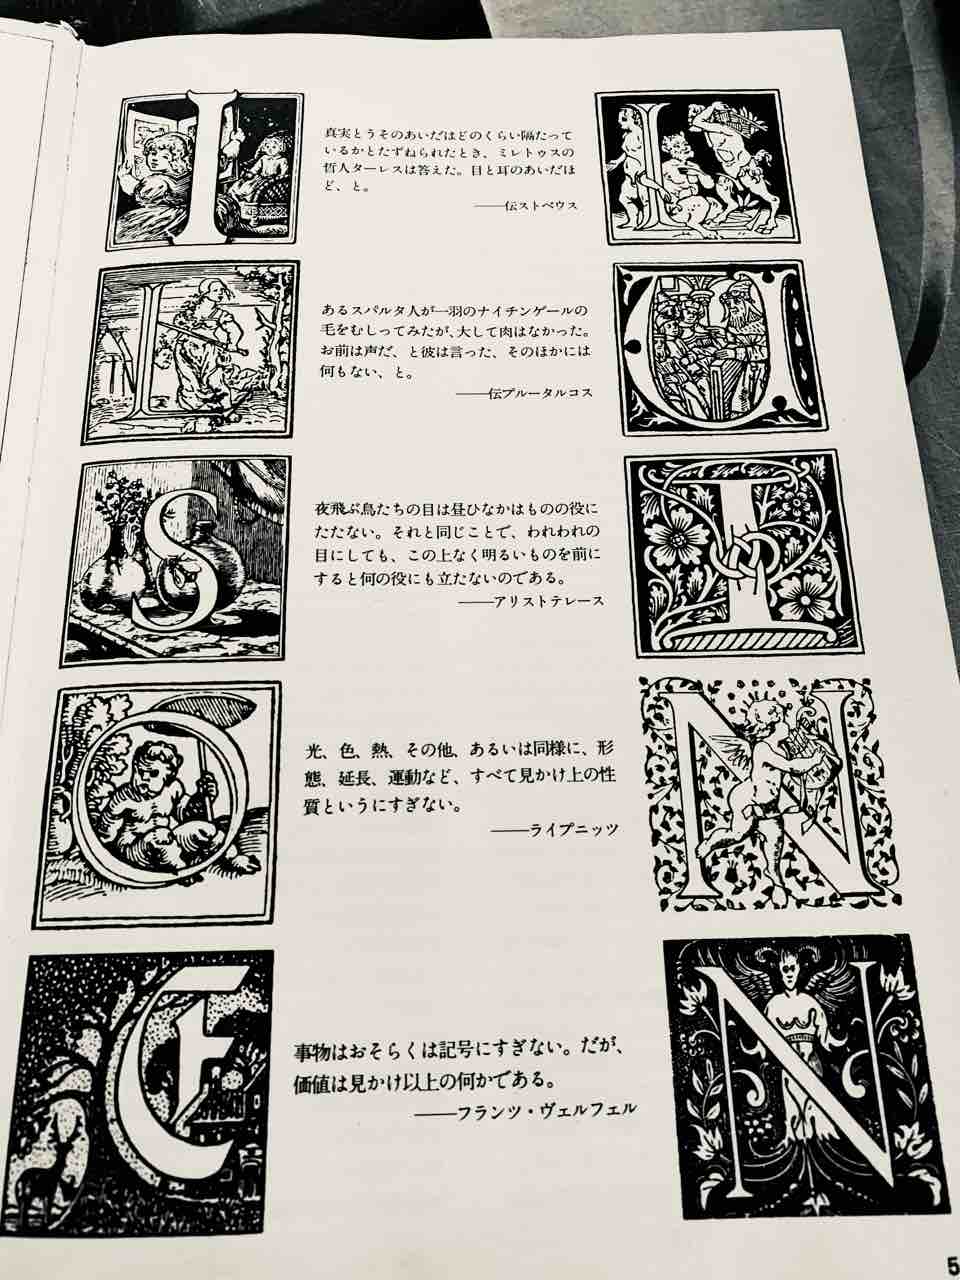 I
真実とうそのあいだはどのくらい隔たって
いるかとたずねられたとき、ミレトゥスの
哲人ターレスは答えた。目と耳のあいだほ
ど、と。
——伝ストベウス
L
L
あるスパルタ人が一羽のナイチンゲールの
毛をむしってみたが、大して肉はなかった。
お前は声だ、と彼は言った、そのほかには
何もない、と。
——伝プルータルコス
U
S
夜飛ぶ鳥たちの目は昼ひなかはものの役に
たたない。それと同じことで、われわれの
目にしても、この上なく明るいものを前に
すると何の役にも立たないのである。
——アリストテレース
I
O
光、色、熱、その他、あるいは同様に、形
態、延長、運動など、すべて見かけ上の性
質というにすぎない。
——ライプニッツ
N
E
事物はおそらくは記号にすぎない。だが、
価値は見かけ以上の何かである。
——フランツ・ヴェルフェル
N
5